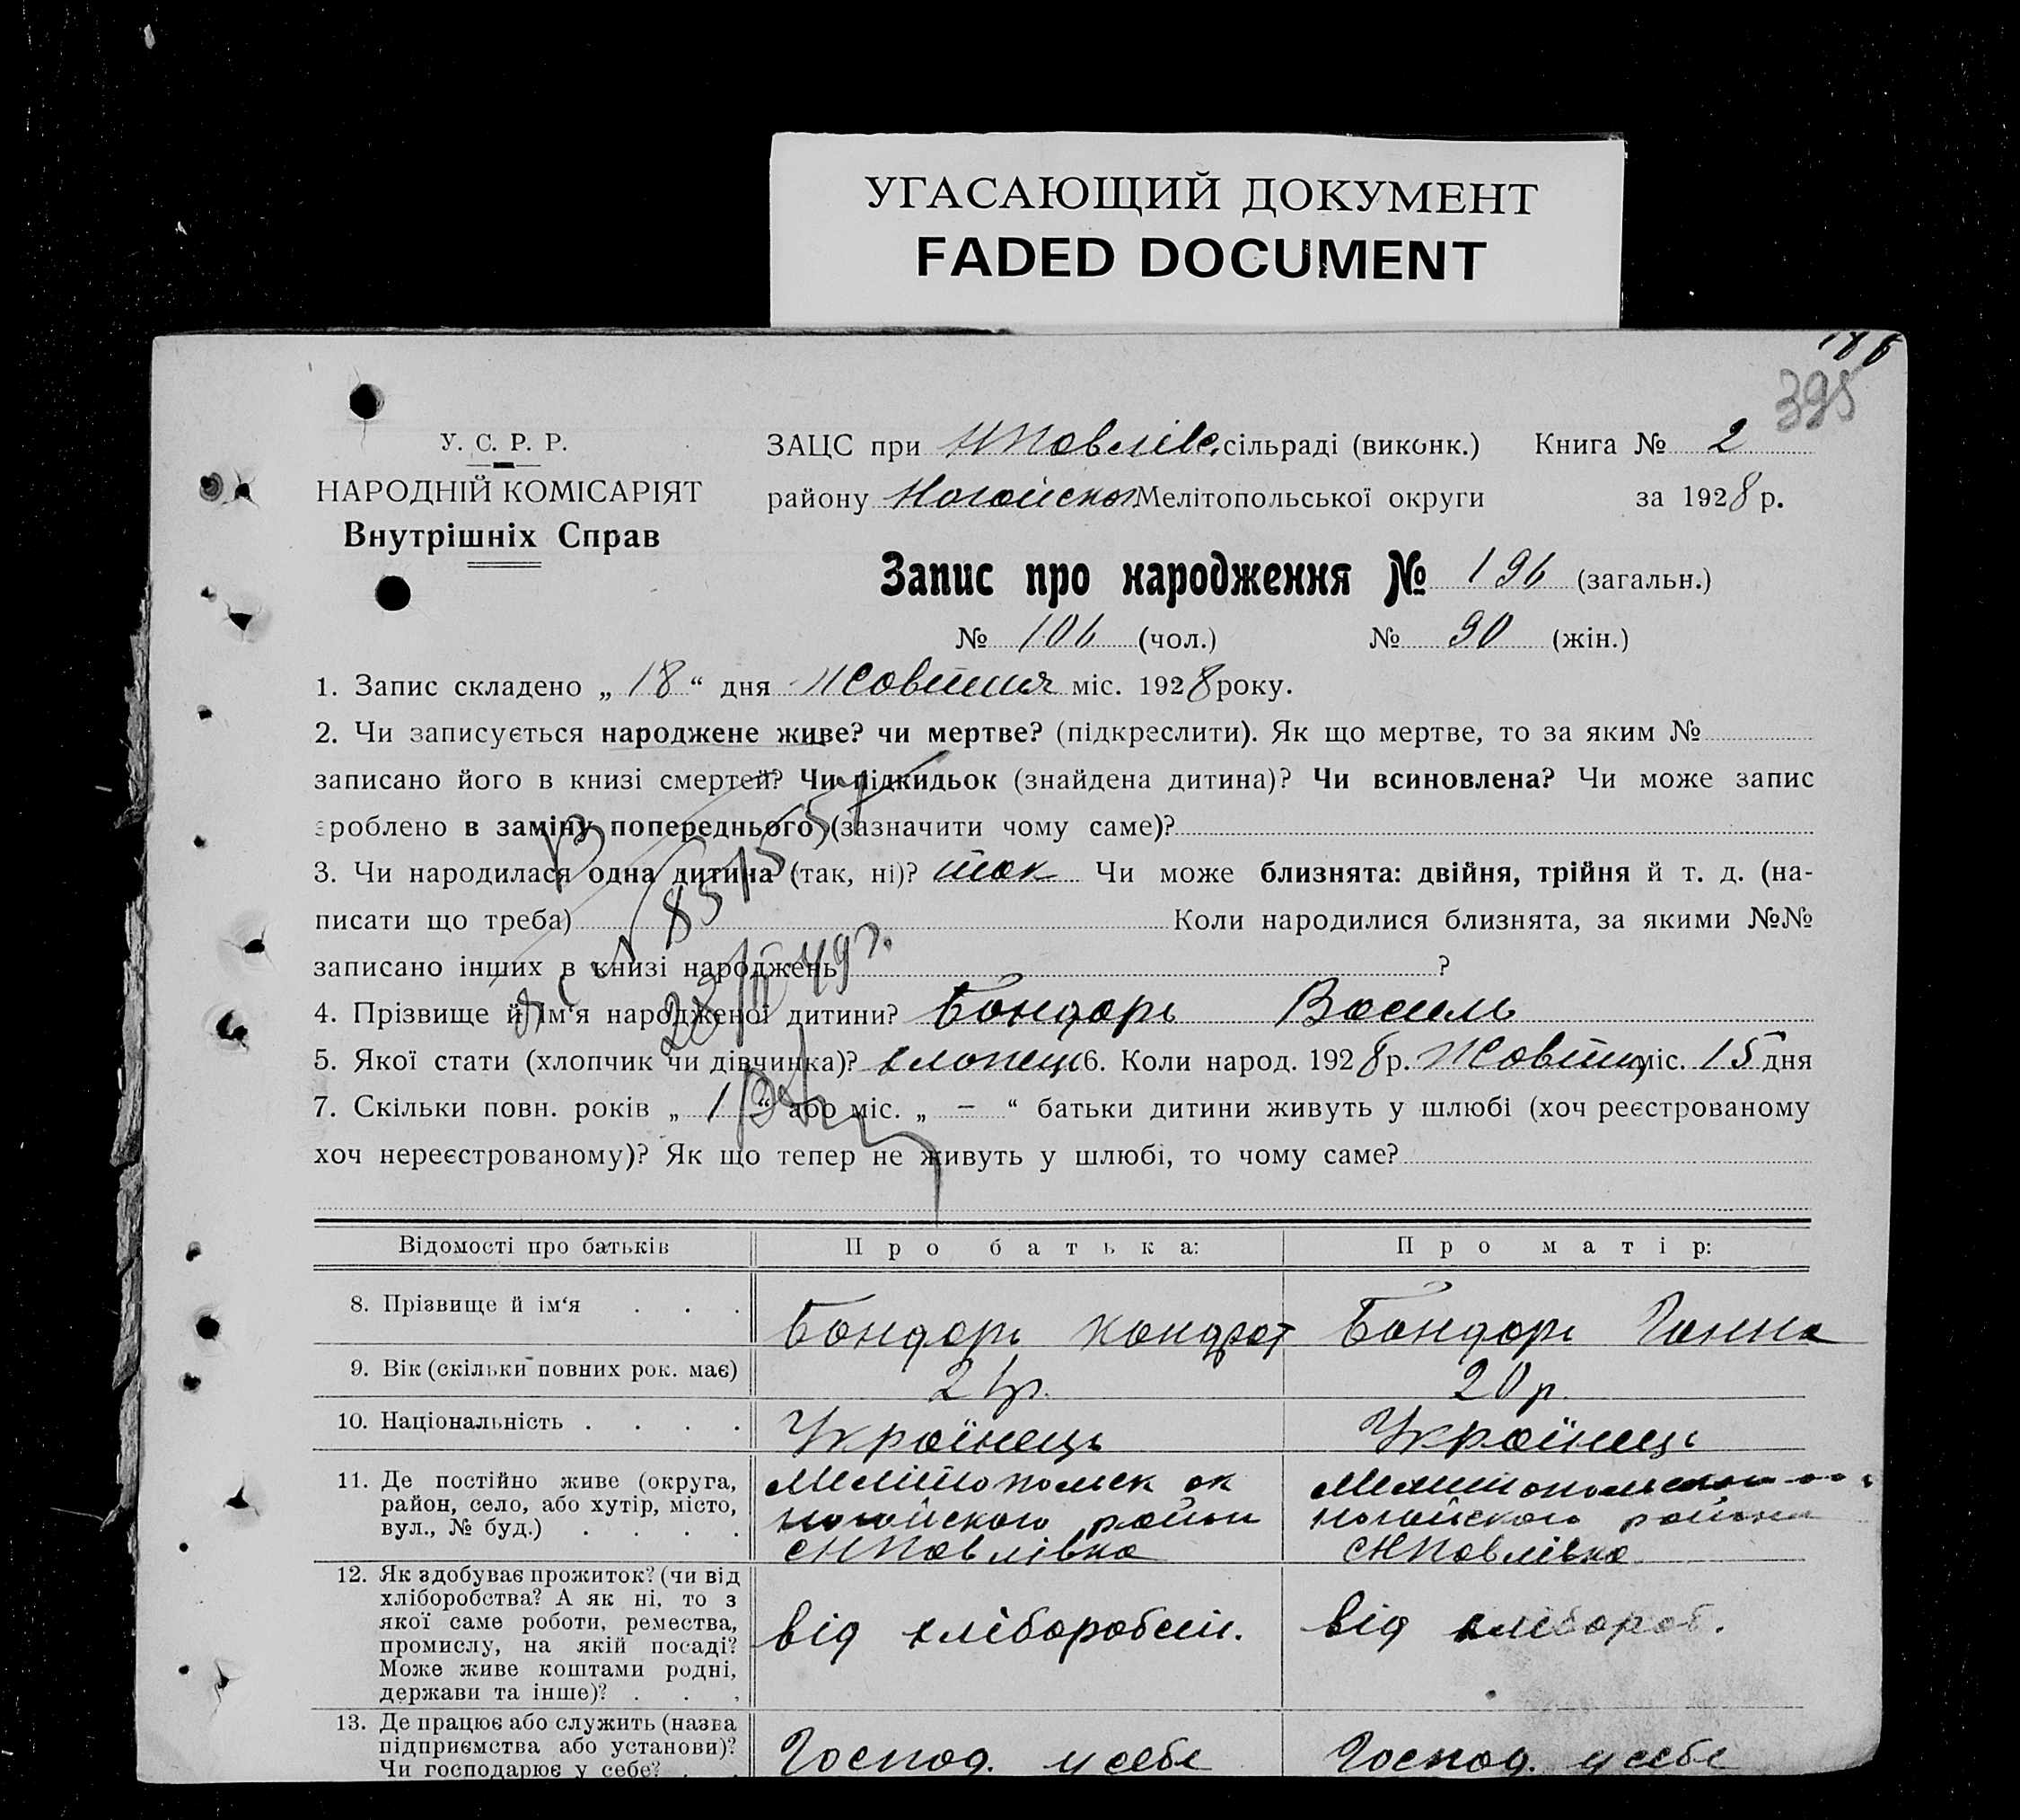 УГАСАЮЩИЙ ДОКУМЕНТ
FADED DOCUMENT
395
У. С. Р. Р.
НАРОДНІЙ КОМІСАРІЯТ
Внутрішніх Справ
ЗАЦС при НПовлівс. сільраді (виконк.) Книга № 2
району Ногайськ Мелітопольської округи за 1928 р.
Запис про народження № 196 (загальн.)
№ 106 (чол.) № 90 (жін.)
1. Запис складено „ 18 “ дня Жовтня міс. 1928 року.
2. Чи записується народжене живе? чи мертве? (підкреслити). Як що мертве, то за яким №
записано його в книзі смертей? Чи підкидьок (знайдена дитина)? Чи всиновлена? Чи може запис
зроблено в заміну попереднього (зазначити чому саме)?
3. Чи народилася одна дитина (так, ні)? так Чи може близнята: двійня, трійня й т. д. (на-
писати що треба) Коли народилися близнята, за якими №№
записано інших в книзі народжень ?
4. Прізвище й Ім'я народженої дитини? Бондарь Василь
5. Якої стати (хлопчик чи дівчинка)? хлопець 6. Коли народ. 1928 р. Жовтня міс. 15 дня
7. Скільки повн. років „ 1 “ або міс. „ - “ батьки дитини живуть у шлюбі (хоч реєстрованому
хоч нереєстрованому)? Як що тепер не живуть у шлюбі, то чому саме?
Відомості про батьків Про батька: Про матір:
8. Прізвище й ім‘я . . . Бондарь Кондрат Бондарь Ганна
9. Вік (скільки повних рок. має) 21р. 20 р.
10. Національність . . . . Українець Українець
11. Де постійно живе (округа, Мелітопольск ок
район, село, або хутір, місто, Ногайського район Ногайского району
вул., № буд.) . . . . с НПовлівка с НПовлівка
12. Як здобуває прожиток? (чи від
хліборобства? А як ні, то з
якої саме роботи, ремества,
промислу, на якій посаді? від хліборобст. від хлібороб.
Може живе коштами родні,
держави та інше)? . . .
13. Де працює або служить (назва
підприємства або установи)? Господ. у себе Господ. у себе
Чи господарює у себе? . .